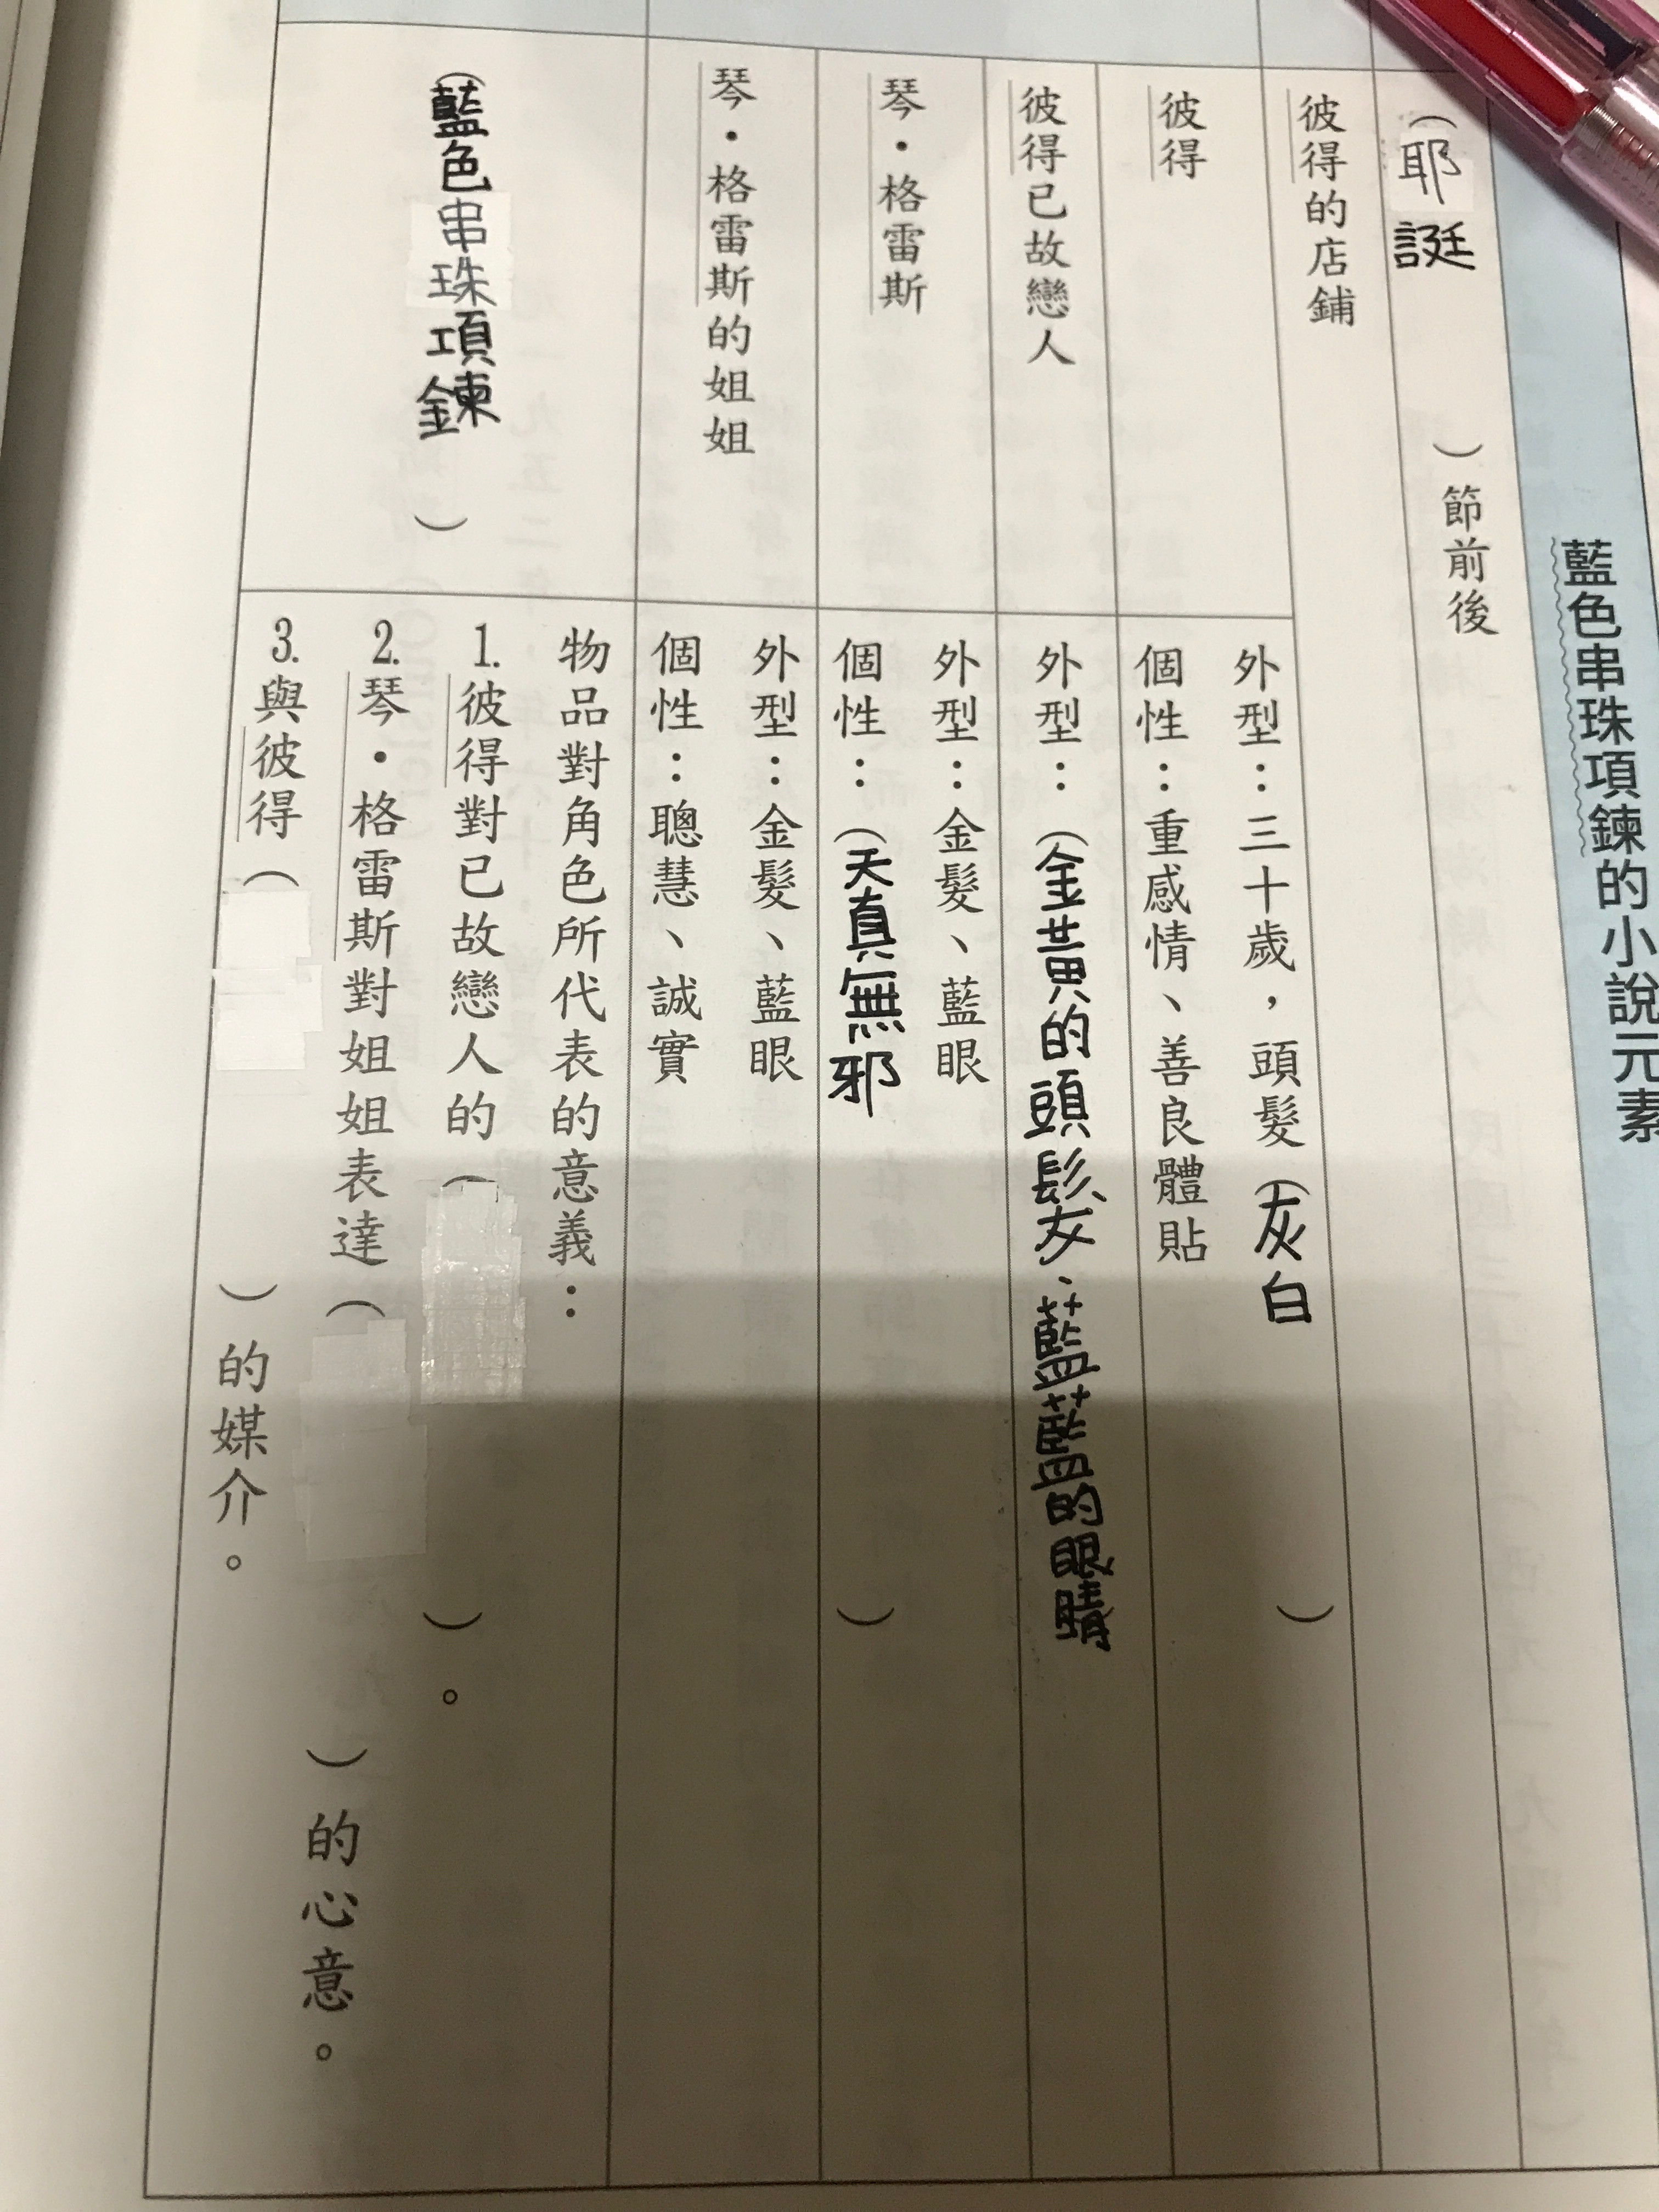 藍色串珠項鍊的小說元素
（耶誕）節前後
彼得的店鋪
彼得
外型：三十歲，頭髮（灰白）
個性：重感情、善良體貼
彼得已故戀人
外型：（金黃的頭髮、藍藍的眼睛
琴・格雷斯
外型：金髮、藍眼
個性：（天真無邪）
琴・格雷斯的姐姐
外型：金髮、藍眼
個性：聰慧、誠實
（藍色串珠項鍊）
物品對角色所代表的意義：
1.彼得對已故戀人的（）。
2.琴・格雷斯對姐姐表達（）的心意。
3.與彼得（）的媒介。